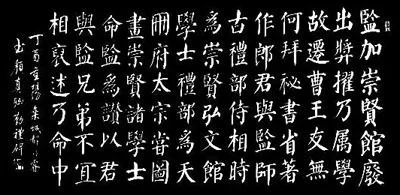 監加崇賢館廢
出弊擢乃属學
故遷曹王友無
何拜祕書省著
作郎君與監師
古禮部侍相時
為崇賢弘文館
學士禮部為天
冊府太宗嘗圖
畫崇賢諸學士
命監為讚以君
與監兄弟不宜
相裒述乃命中
丁酉重陽
書顏真卿勤禮碑